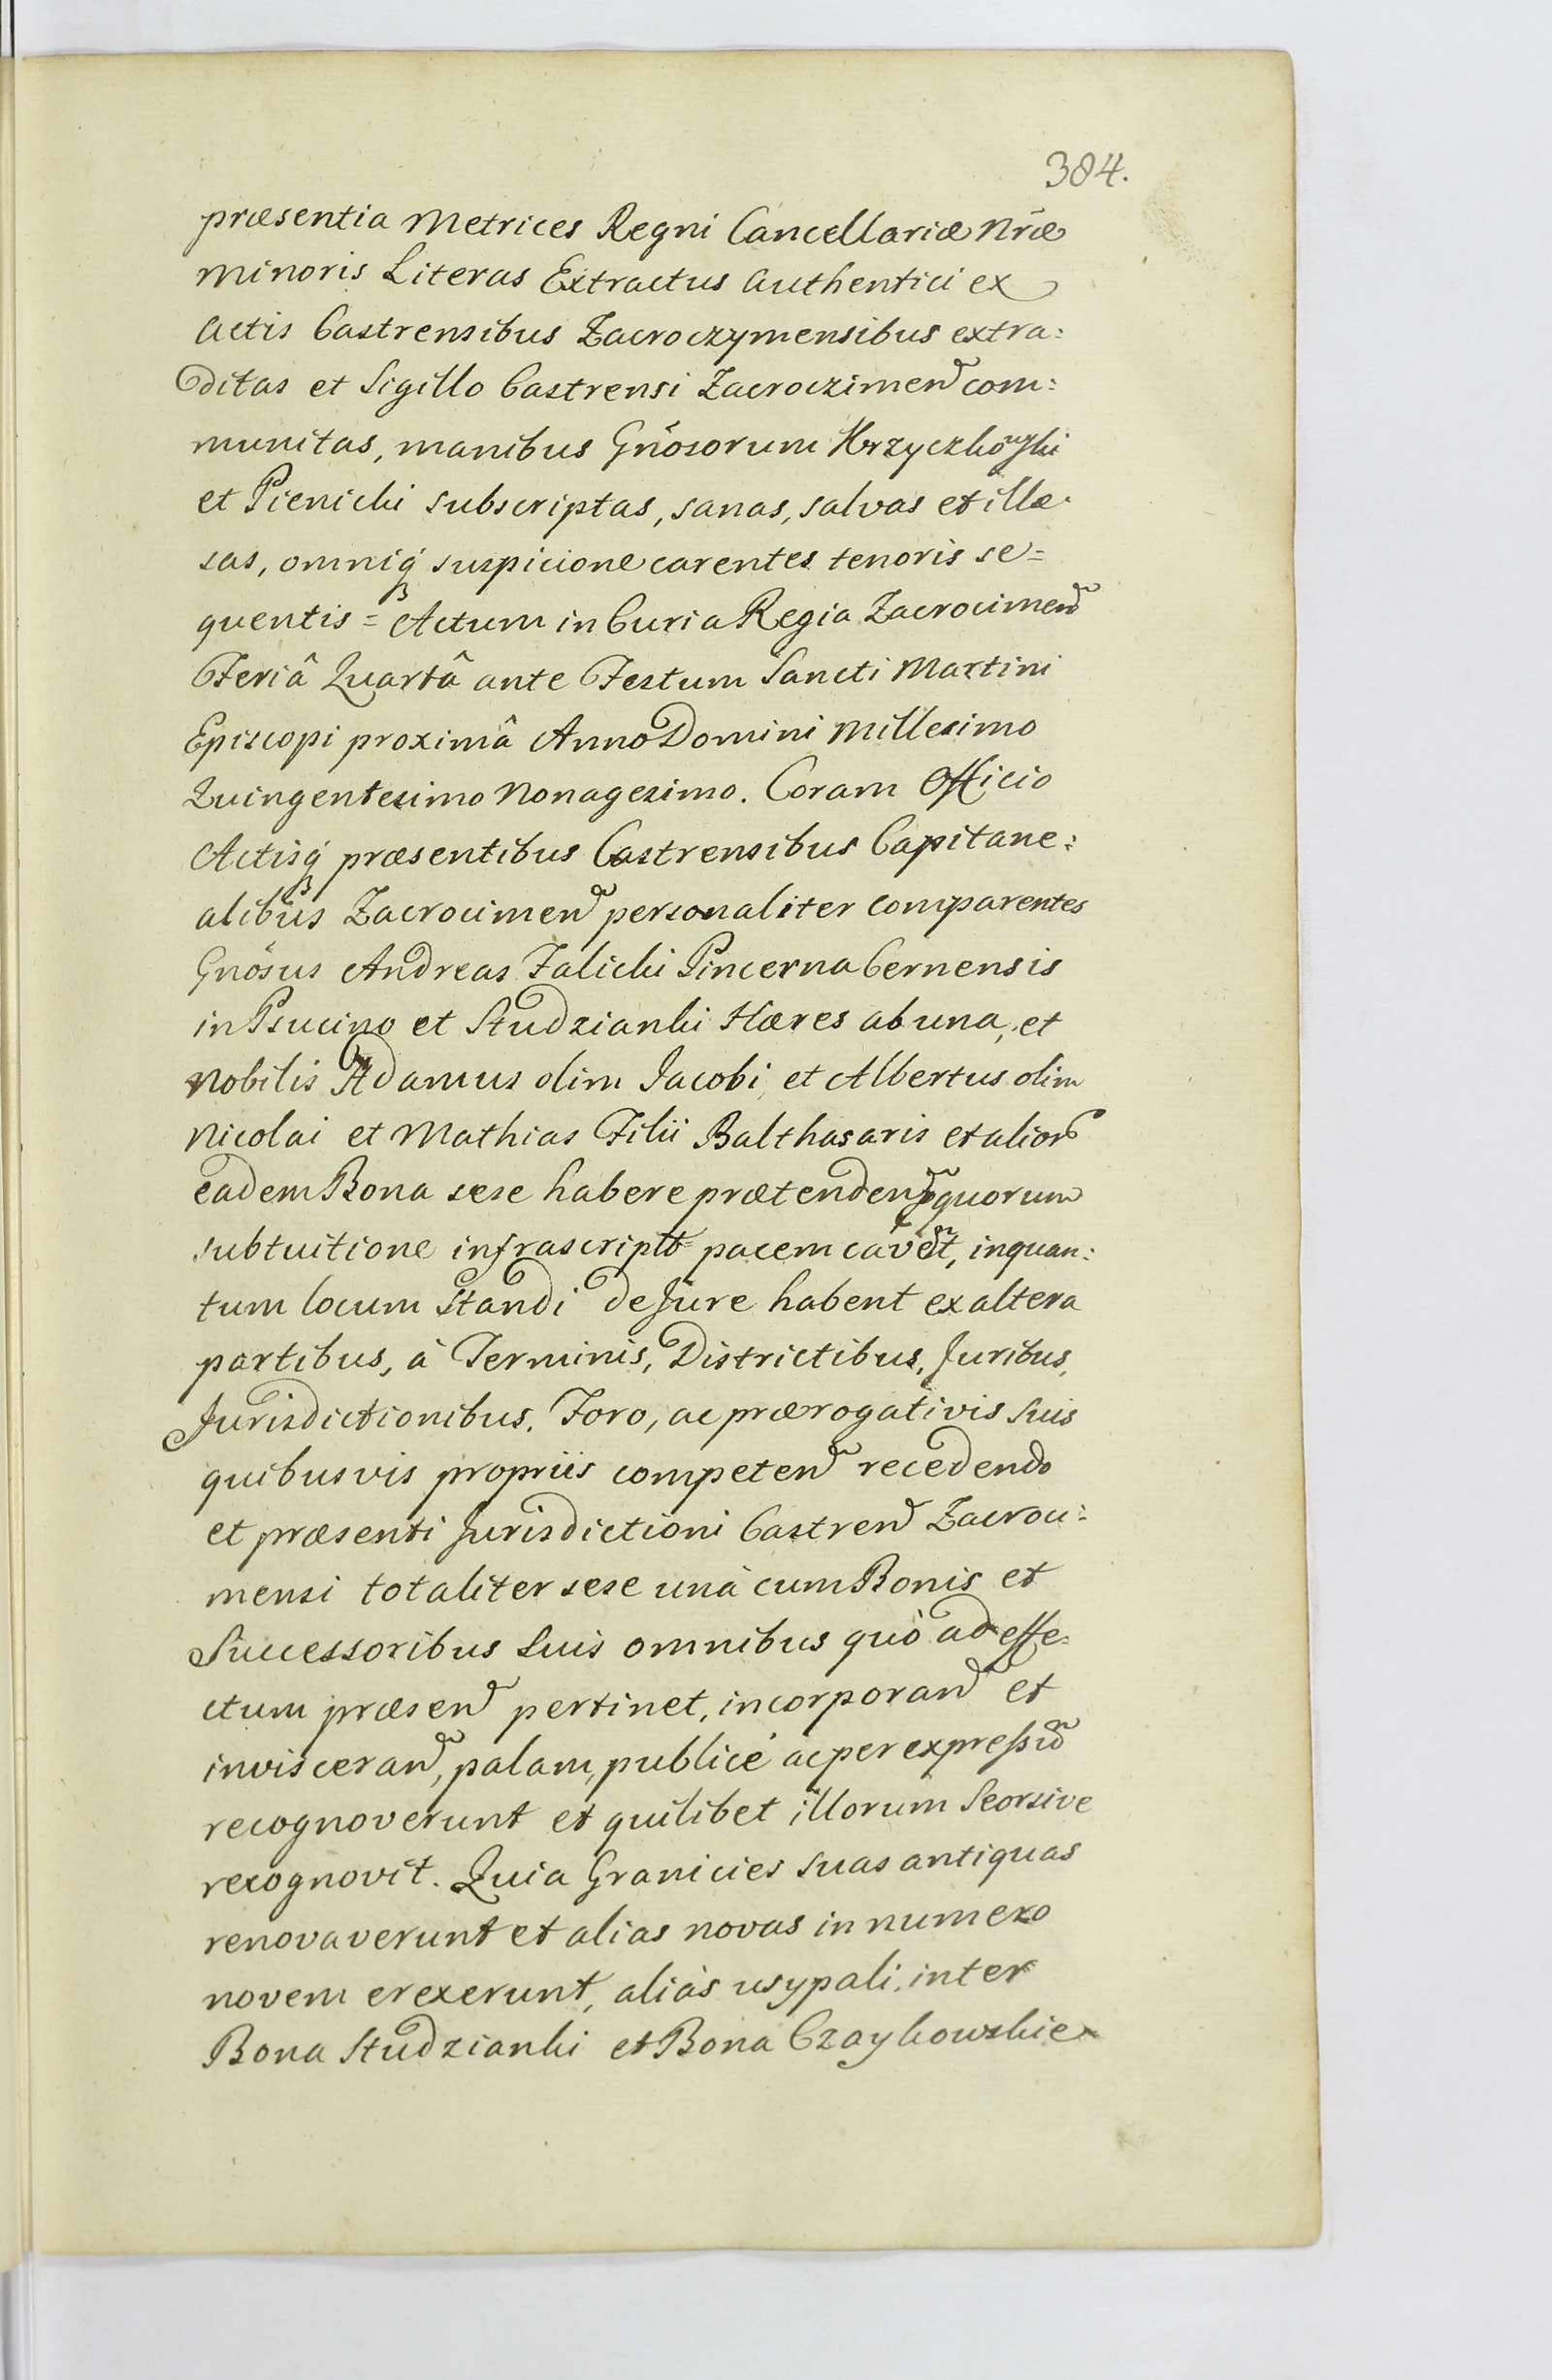 384.
præsentia Metrices Regni Cancellariæ Nr̃æ
Minoris Literas Extractus Authentici ex
Actis Castrensibus Zacroczymensibus extra:
ditas et Sigillo Castrensi Zacroczimen̄ com:
munitas, manibus Gn̄osorum Krzyczkowski
et Pienicki subscriptas, sanas, salvas et illæ
sas, omniq̨ suspicione carentes tenoris se=
quentis = Actum in Curia Regia Zacrocimen̄
Feriâ Quartâ ante Festum Sancti Martini
Episcopi proximâ Anno Domini Millesimo
Quingentesimo Nonagesimo. Coram Officio
Actisq̨ præsentibus Castrensibus Capitane:
alibus Zacrocimen̄ personaliter comparentes
Gnōsus Andreas Zalicki Pincerna Cernensis
in Psucino et Studzianki Hæres ab una, et
Nobilis Adamus olim Jacobi, et Albertus olim
Nicolai et Mathias Filii Balthasaris et alior̃
eadem Bona sese habere prætenden̄ quorum
subtuitione infrascript pacem cavet̃, inquan:
tum locum Standi de Jure habent ex altera
partibus, à Terminis, Districtibus, Juribus,
Jurisdictionibus. Foro, ac prærogativis Suis
quibusvis propriis competen̄ recedendo
et præsenti Jurisdictioni Castren̄ Zacroci:
mensi totaliter sese unà cum Bonis et
Successoribus Suis omnibus quò ad effe:
ctum præsen̄ pertinet, incorporan̄ et
invisceran̄, palam, publicé ac per expressũ
recognoverunt et quilibet illorum Seorsive
recognovit. Quia Granicies suas antiquas
renovaverunt et alias novas in numero
novem erexerunt, aliàs usypali, inter
Bona Studzianki et Bona Czaykowskie